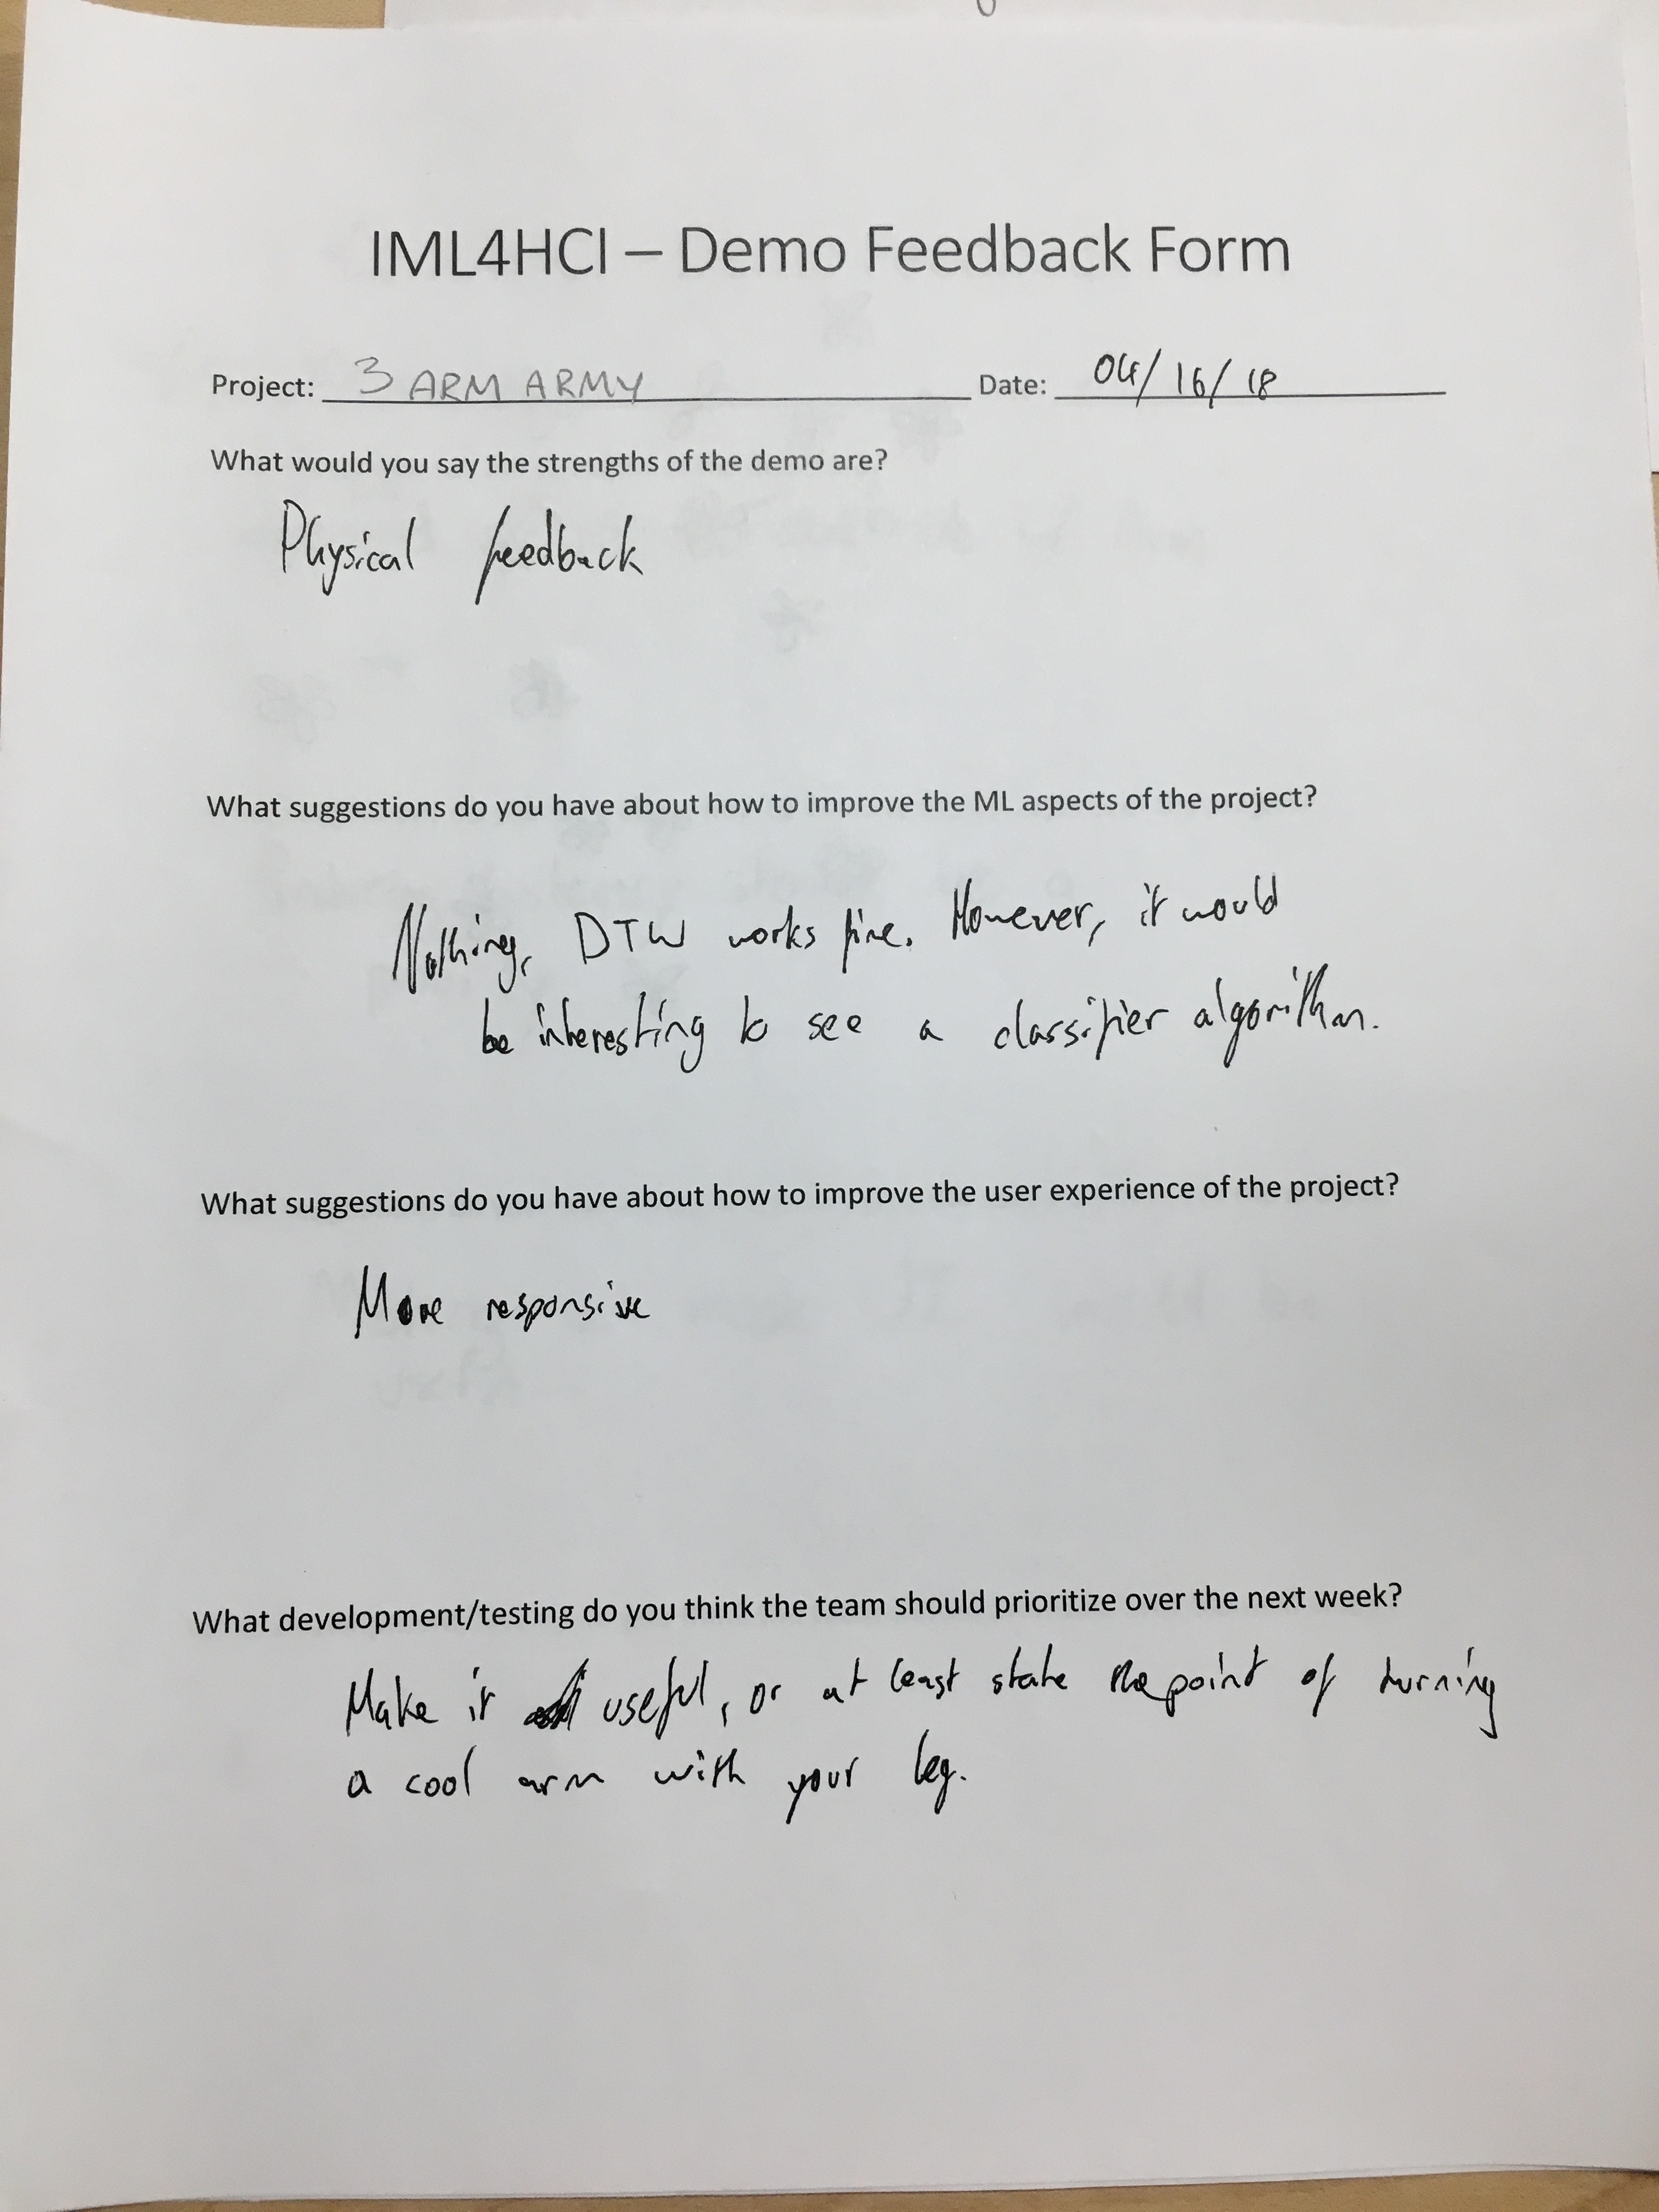 IML4HCI – Demo Feedback Form
Project: 3 ARM ARMY Date: 04/16/18
What would you say the strengths of the demo are?
Physical feedback
What suggestions do you have about how to improve the ML aspects of the project?
Nothing, DTW works fine. However, it would
be interesting to see a classifier algorithm.
What suggestions do you have about how to improve the user experience of the project?
More responsive
What development/testing do you think the team should prioritize over the next week?
Make it useful, or at least state the point of turning
a cool arm with your leg.